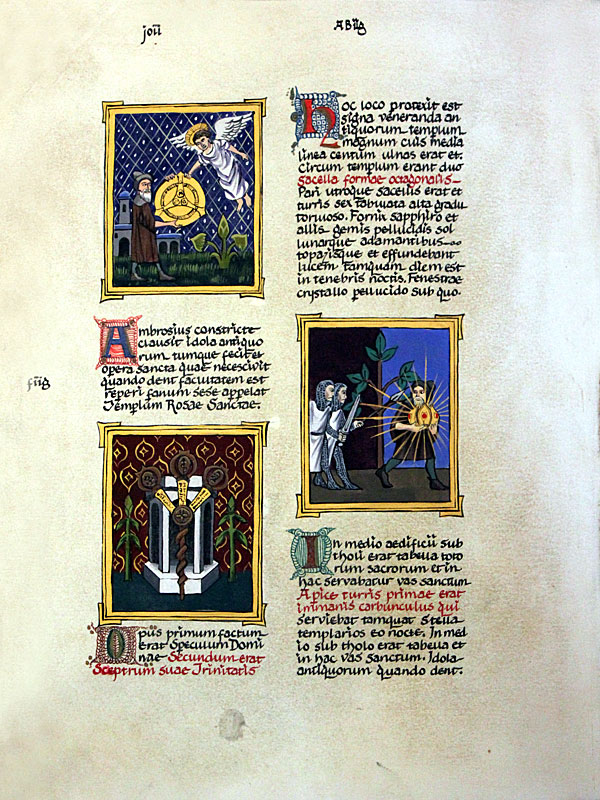 joīī
ABiig
Ambrosius constricte
clausit idola antiquo
rum tumque fecit et
opera sancta quae necscivit
quando dent facuitatem est
reperi fanum sese appelat
Templum Rosae Sanctae.
fiig
Opus primum factum
erat Speculum Domi
nae Secundum erat
Sceptrum suae Trinitatis
Hoc loco protexit est
signa veneranda an
tiquorum templum
magnum cuis media
linea centum ulnas erat et.
Circum templum erant duo
sacella formae octagonalis
Pari utroque sacellis erat et
turris sex tabulata alta gradu
toruoso. Fornix sapphiro et
allis gemis pellucidis sol
lunarque adamantibus
topazisque et effundebant
lucem tamquam diem est
in tenebris noctis. Fenestrae
crystallo pellucido sub quo.
In medio aedificii sub
tholi erat tabela toto
rum sacrorum et in
hac servabatur vas sanctum
Apice turris primae erat
inmanis carbunculus qui
serviebat tamquat stella
templarios eo nocte. In med
io sub tholo erat tabela et
in hac vas sanctum. Idola
antiquorum quando dent.